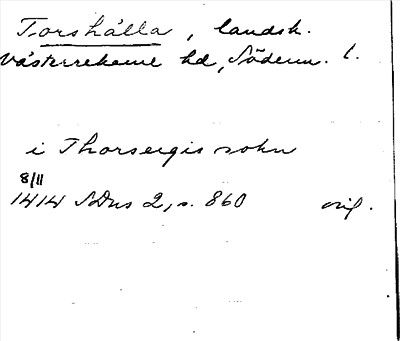 Torshälla, landsk.
Västerrekarne hd, Söderm. l.
i Thorsergis sokn
8/11
1414 SDns 2, s. 860 orig.